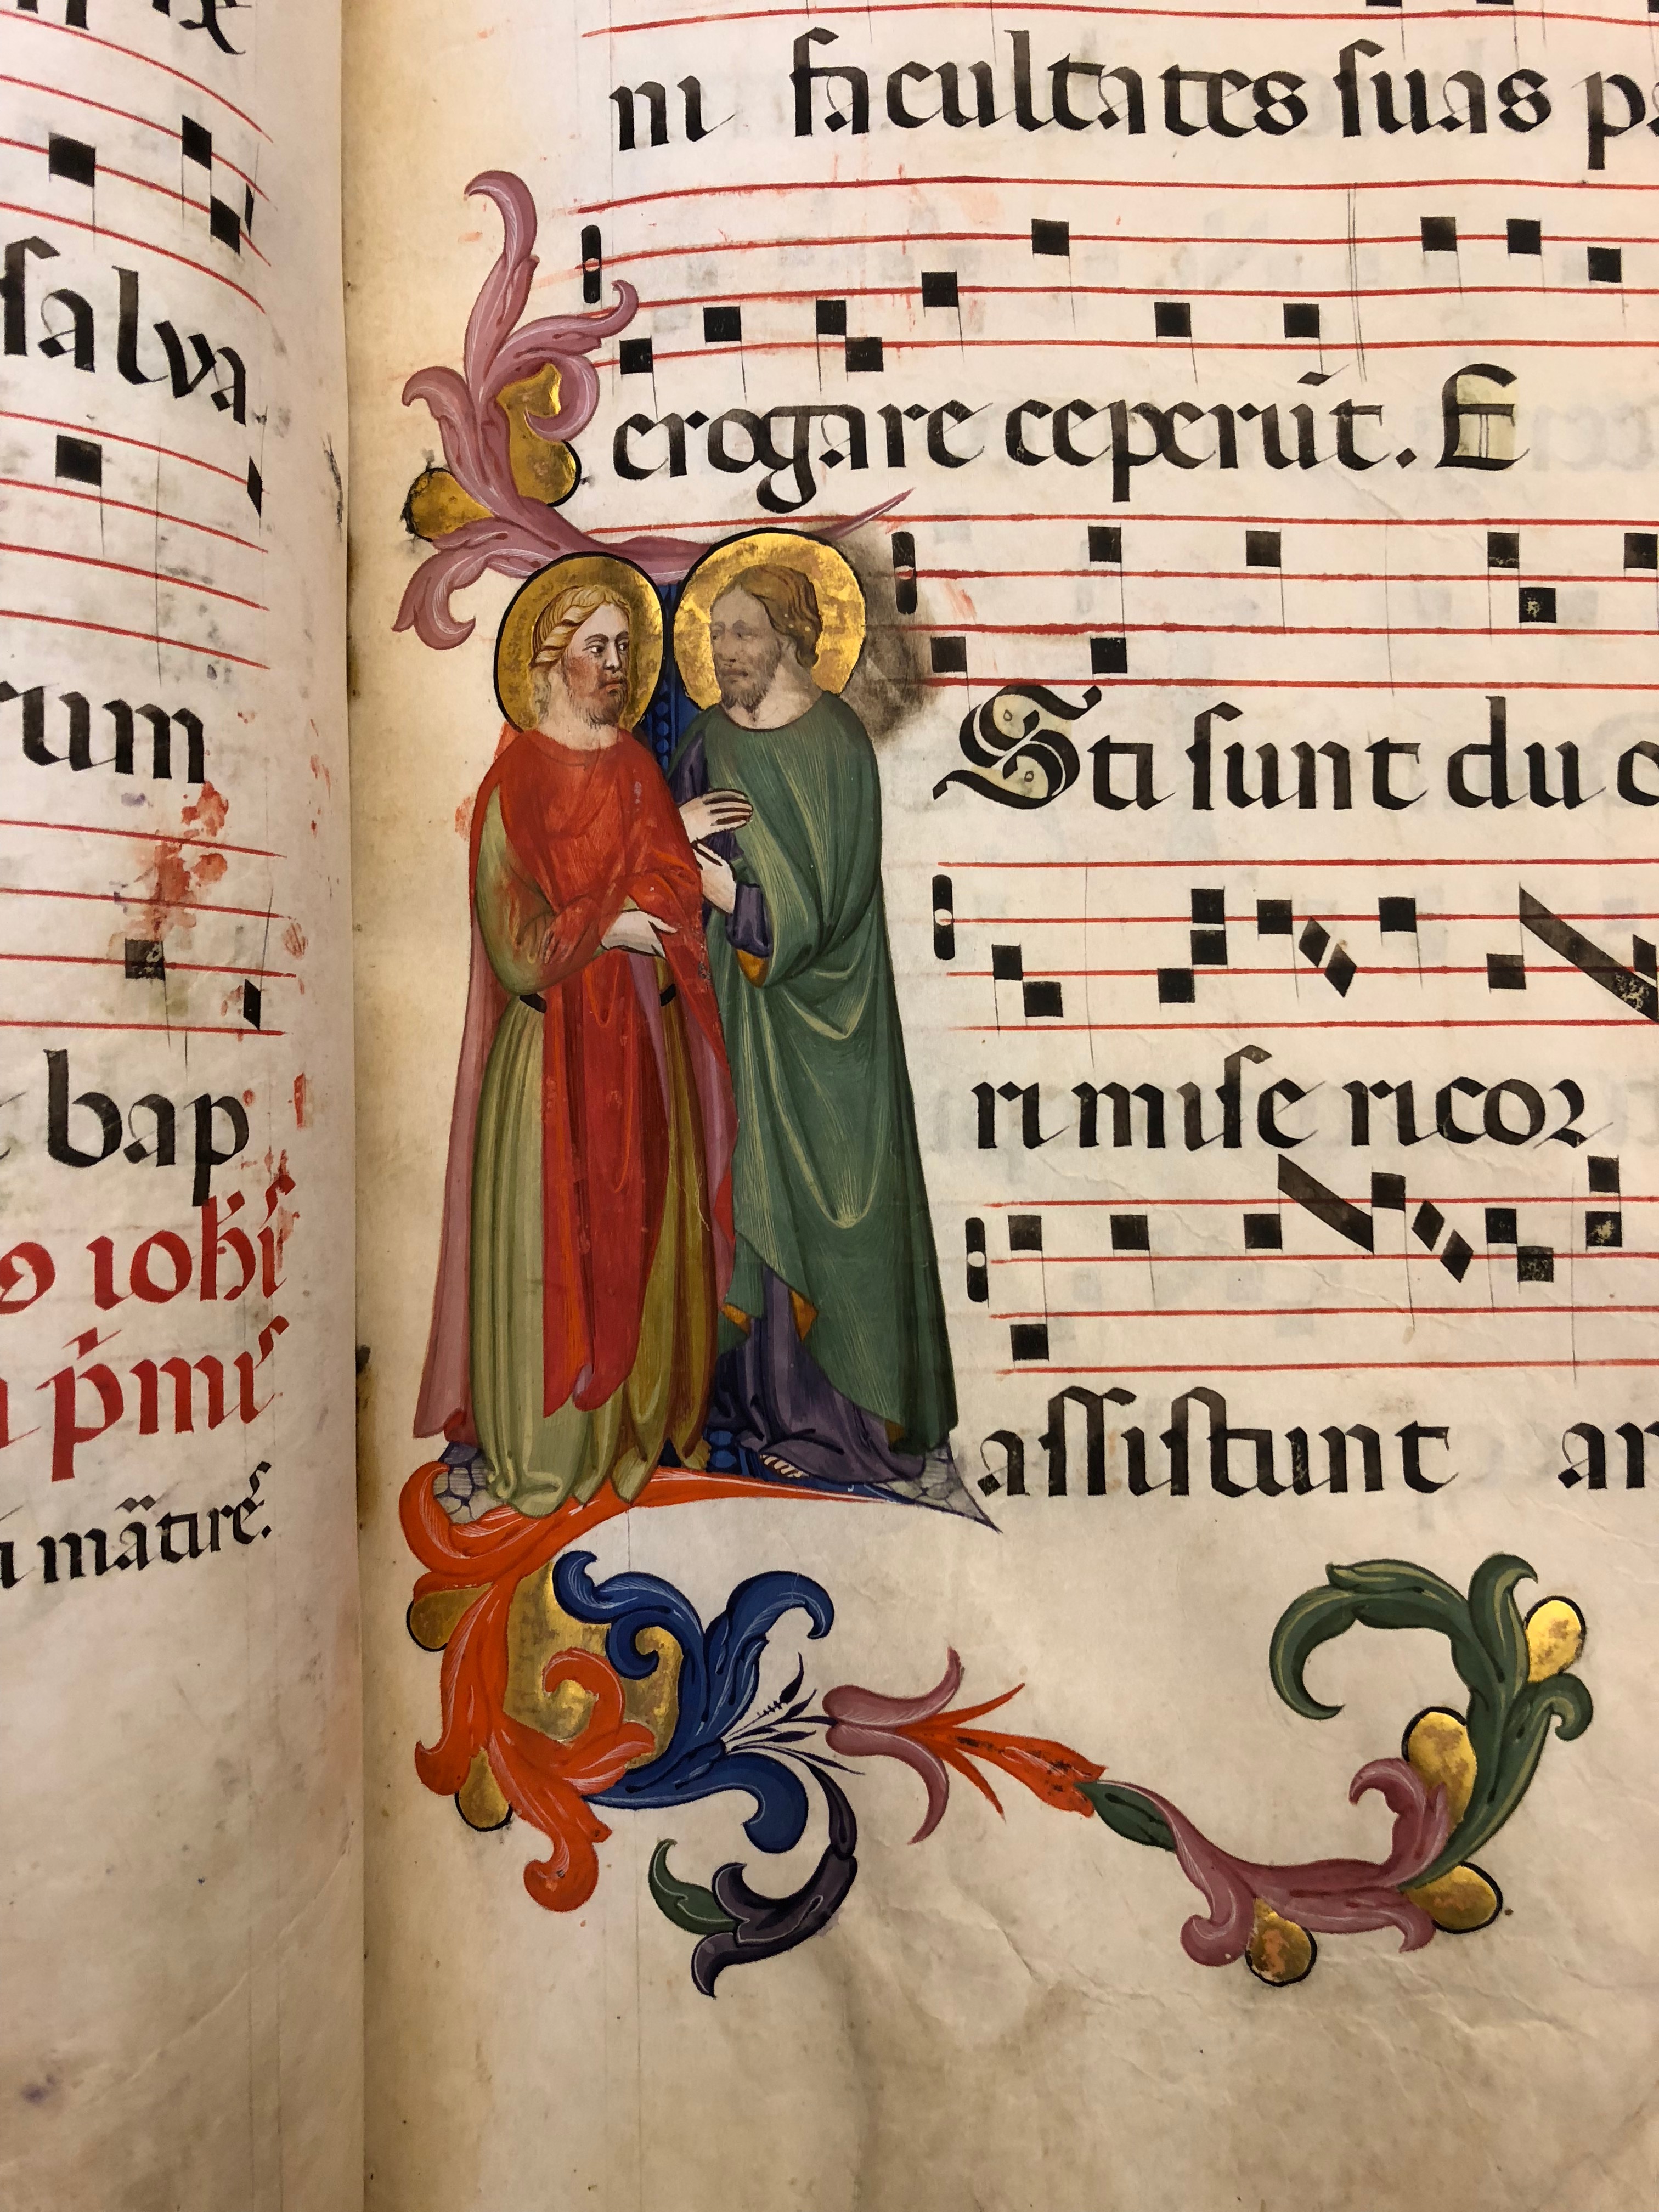 salva
rum
bap
iohi
pmi
matire.
ni facultates suas
erogare ceperūt. E
Sti sunt du
ri mise ricor
assistunt